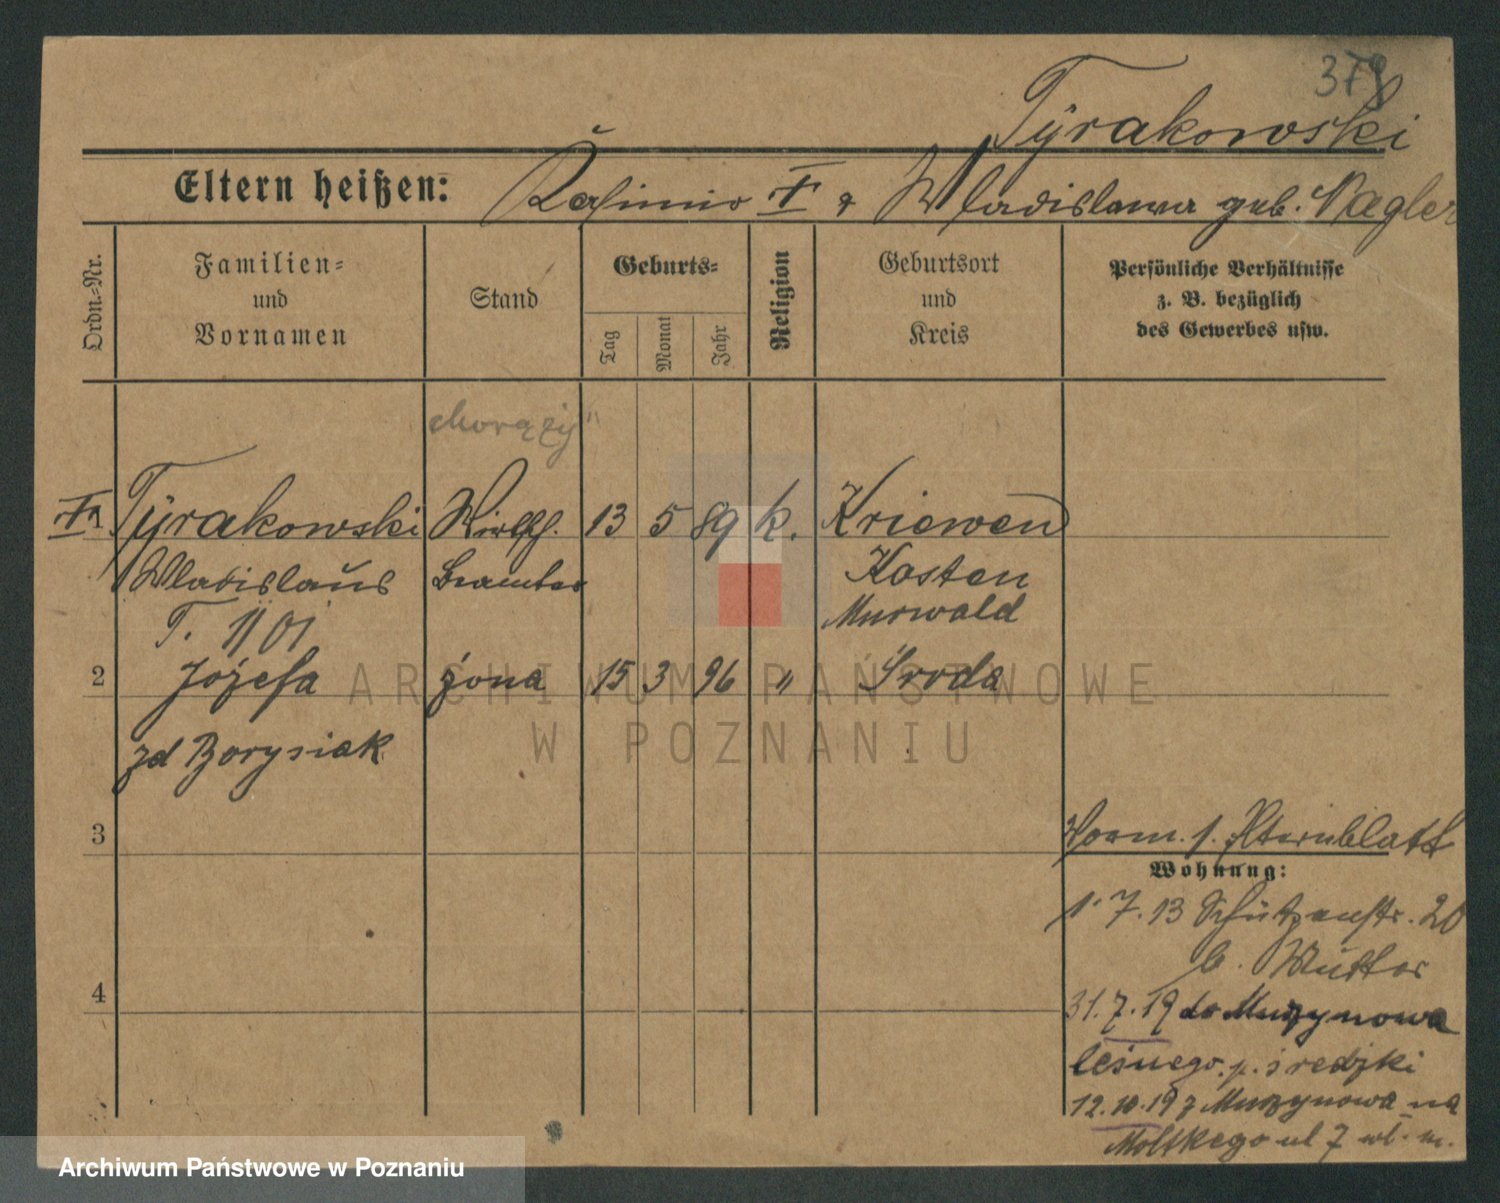 379
Tyrakowski
Eltern heißen: Kasimir I & Wladislawa geb. Nagler
Ordn.-Nr.
Familien-
und
Vornamen
Stand
Geburts-
Tag
Monat
Jahr
Religion
Geburtsort
und
Kreis
Persönliche Verhältnisse
z. B. bezüglich
des Gewerbes usw.
chorąży"
1 Tyrakowski Wirtsch. 13 5 89 k. Kriewen
Wladislaus Beamter Kosten
T. 1101 Murwald
2 Józefa żona 15 3 96 " Środa
zd Borysiak
3
Vorm. s. Elternblatt
Wohnung:
1. 7. 13 Schützenstr. 20
b. Mutter
4
31. 7. 19 do Murzynowa
leśnego. p. średzki
12. 10. 19 z Murzynowa na
Moltkego ul 7
ARCHIWUM PAŃSTWOWE
W POZNANIU
Archiwum Państwowe w Poznaniu